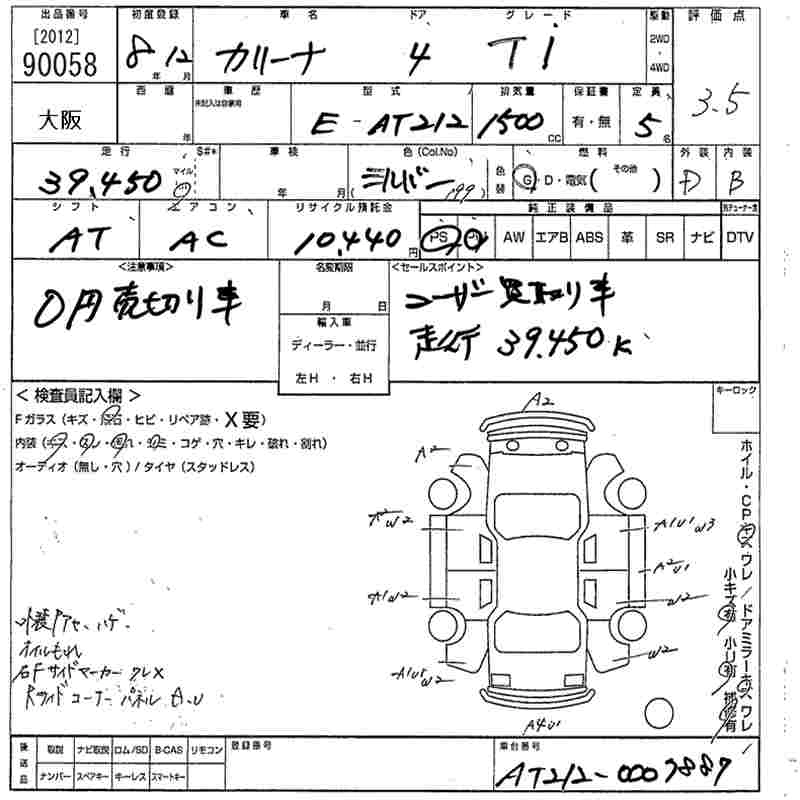 出品番号 初度登録 車名 ドア グレード 駆動 評価点
[2012] 90058 8年 12月 カリーナ 4 Ti 2WD・4WD 3.5
大阪 西暦 年 車歴 未記入は自家用 型式 E-AT212 排気量 1500 CC 保証書 有・無 定員 5名
走行 39,450 マイル S#* 車検 年 月 色(Col.No) シルバー (199) 色替 燃料 G・D・電気( その他 ) 外装 D 内装 B
シフト AT エアコン AC リサイクル預託金 10,440円 純正装備品 PS PW AW エアB ABS 革 SR ナビ 地デジチューナー DTV
<注意事項> 名変期限 <セールスポイント>
0円売切り車 月 日 ユーザー買取り車
輸入車 走行 39.450K
ディーラー・並行
左H ・ 右H
<検査員記入欄> キーロック
Fガラス(キズ・飛石・ヒビ・リペア跡・X要)
内装(キズ・スレ・汚れ・シミ・コゲ・穴・キレ・破れ・割れ)
オーディオ(無し・穴)/タイヤ(スタッドレス)
A2
A2
A2 W2 A1U1 W3
A2U1
A1W2 W2
W2
A1U1 W2
A4U1
ホイル・CPキズ ワレ/ドアミラーキズ ワレ/
小キズ有 小凹有 補修有
オイルもれ
右Fサイドマーカー ワレX
Rサイドコーナーパネル A.U
後送品 取説 ナビ取説 ロム/SD B-CAS リモコン 登録番号 車台番号
ナンバー スペアキー キーレス スマートキー AT212-0007887